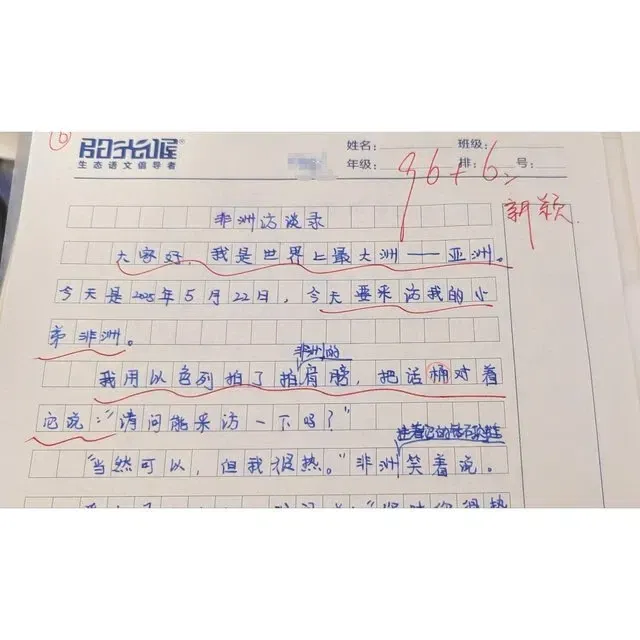 6
阳光喔®
生态语文倡导者
姓名: 班级:
年级: 排: 号:
96+6=
新颖
非洲访谈录
大家好,我是世界上最大洲——亚洲。
今天是2025年5月22日,今天要采访我的小
弟非洲。
非洲的
我用以色列拍了拍肩膀,把话桶对着
它说:“请问能采访一下吗?”
“当然可以,但我很热。”非洲笑着说。